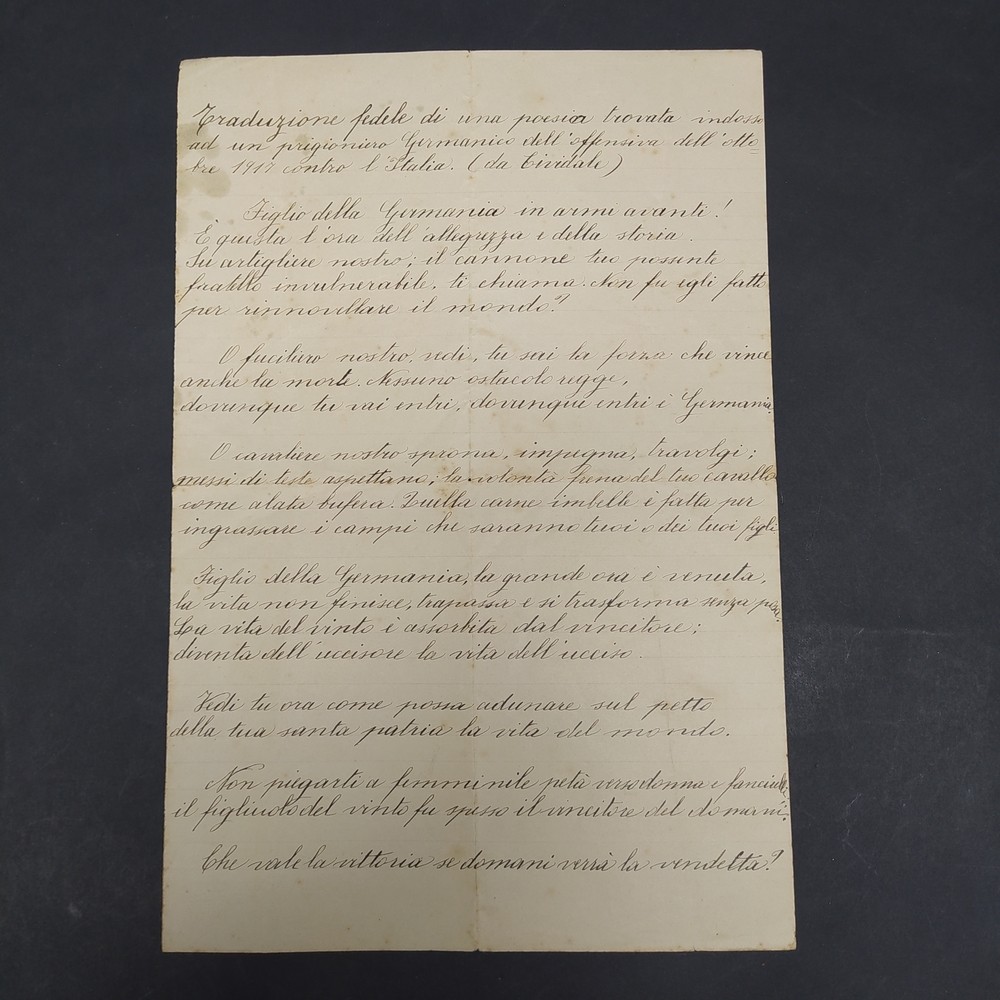 Traduzione fedele di una poesia trovata indosso
ad un prigioniero Germanico dell'offensiva dell'otto=
bre 1917 contro l'Italia. (da Cividale)
Figlio della Germania in armi avanti!
È questa l'ora dell'allegrezza e della storia.
Su artigliere nostro; il cannone tuo possente
fratello invulnerabile, ti chiama. Non fu egli fatto
per rinnovellare il mondo?
O fuciliere nostro, vedi, tu sei la forza che vince
anche la morte. Nessuno ostacolo regge,
dovunque tu vai entri, dovunque entri è Germania.
O cavaliere nostro sprona, impegna, travolgi;
messi di teste aspettano; la volontà frema del tuo cavallo
come alata bufera. Quella carne imbelle è fatta per
ingrassare i campi che saranno tuoi o dei tuoi figli
Figlio della Germania, la grande ora è venuta,
la vita non finisce, trapassa e si trasforma senza posa.
La vita del vinto è assorbita dal vincitore;
diventa dell'uccisore la vita dell'ucciso.
Vedi tu ora come possa adunare sul petto
della tua santa patria la vita del mondo.
Non piegarti a femminile petà verso donna e fanciulli;
il figliuolo del vinto fu spesso il vincitore del domani.
Che vale la vittoria se domani verrà la vendetta?